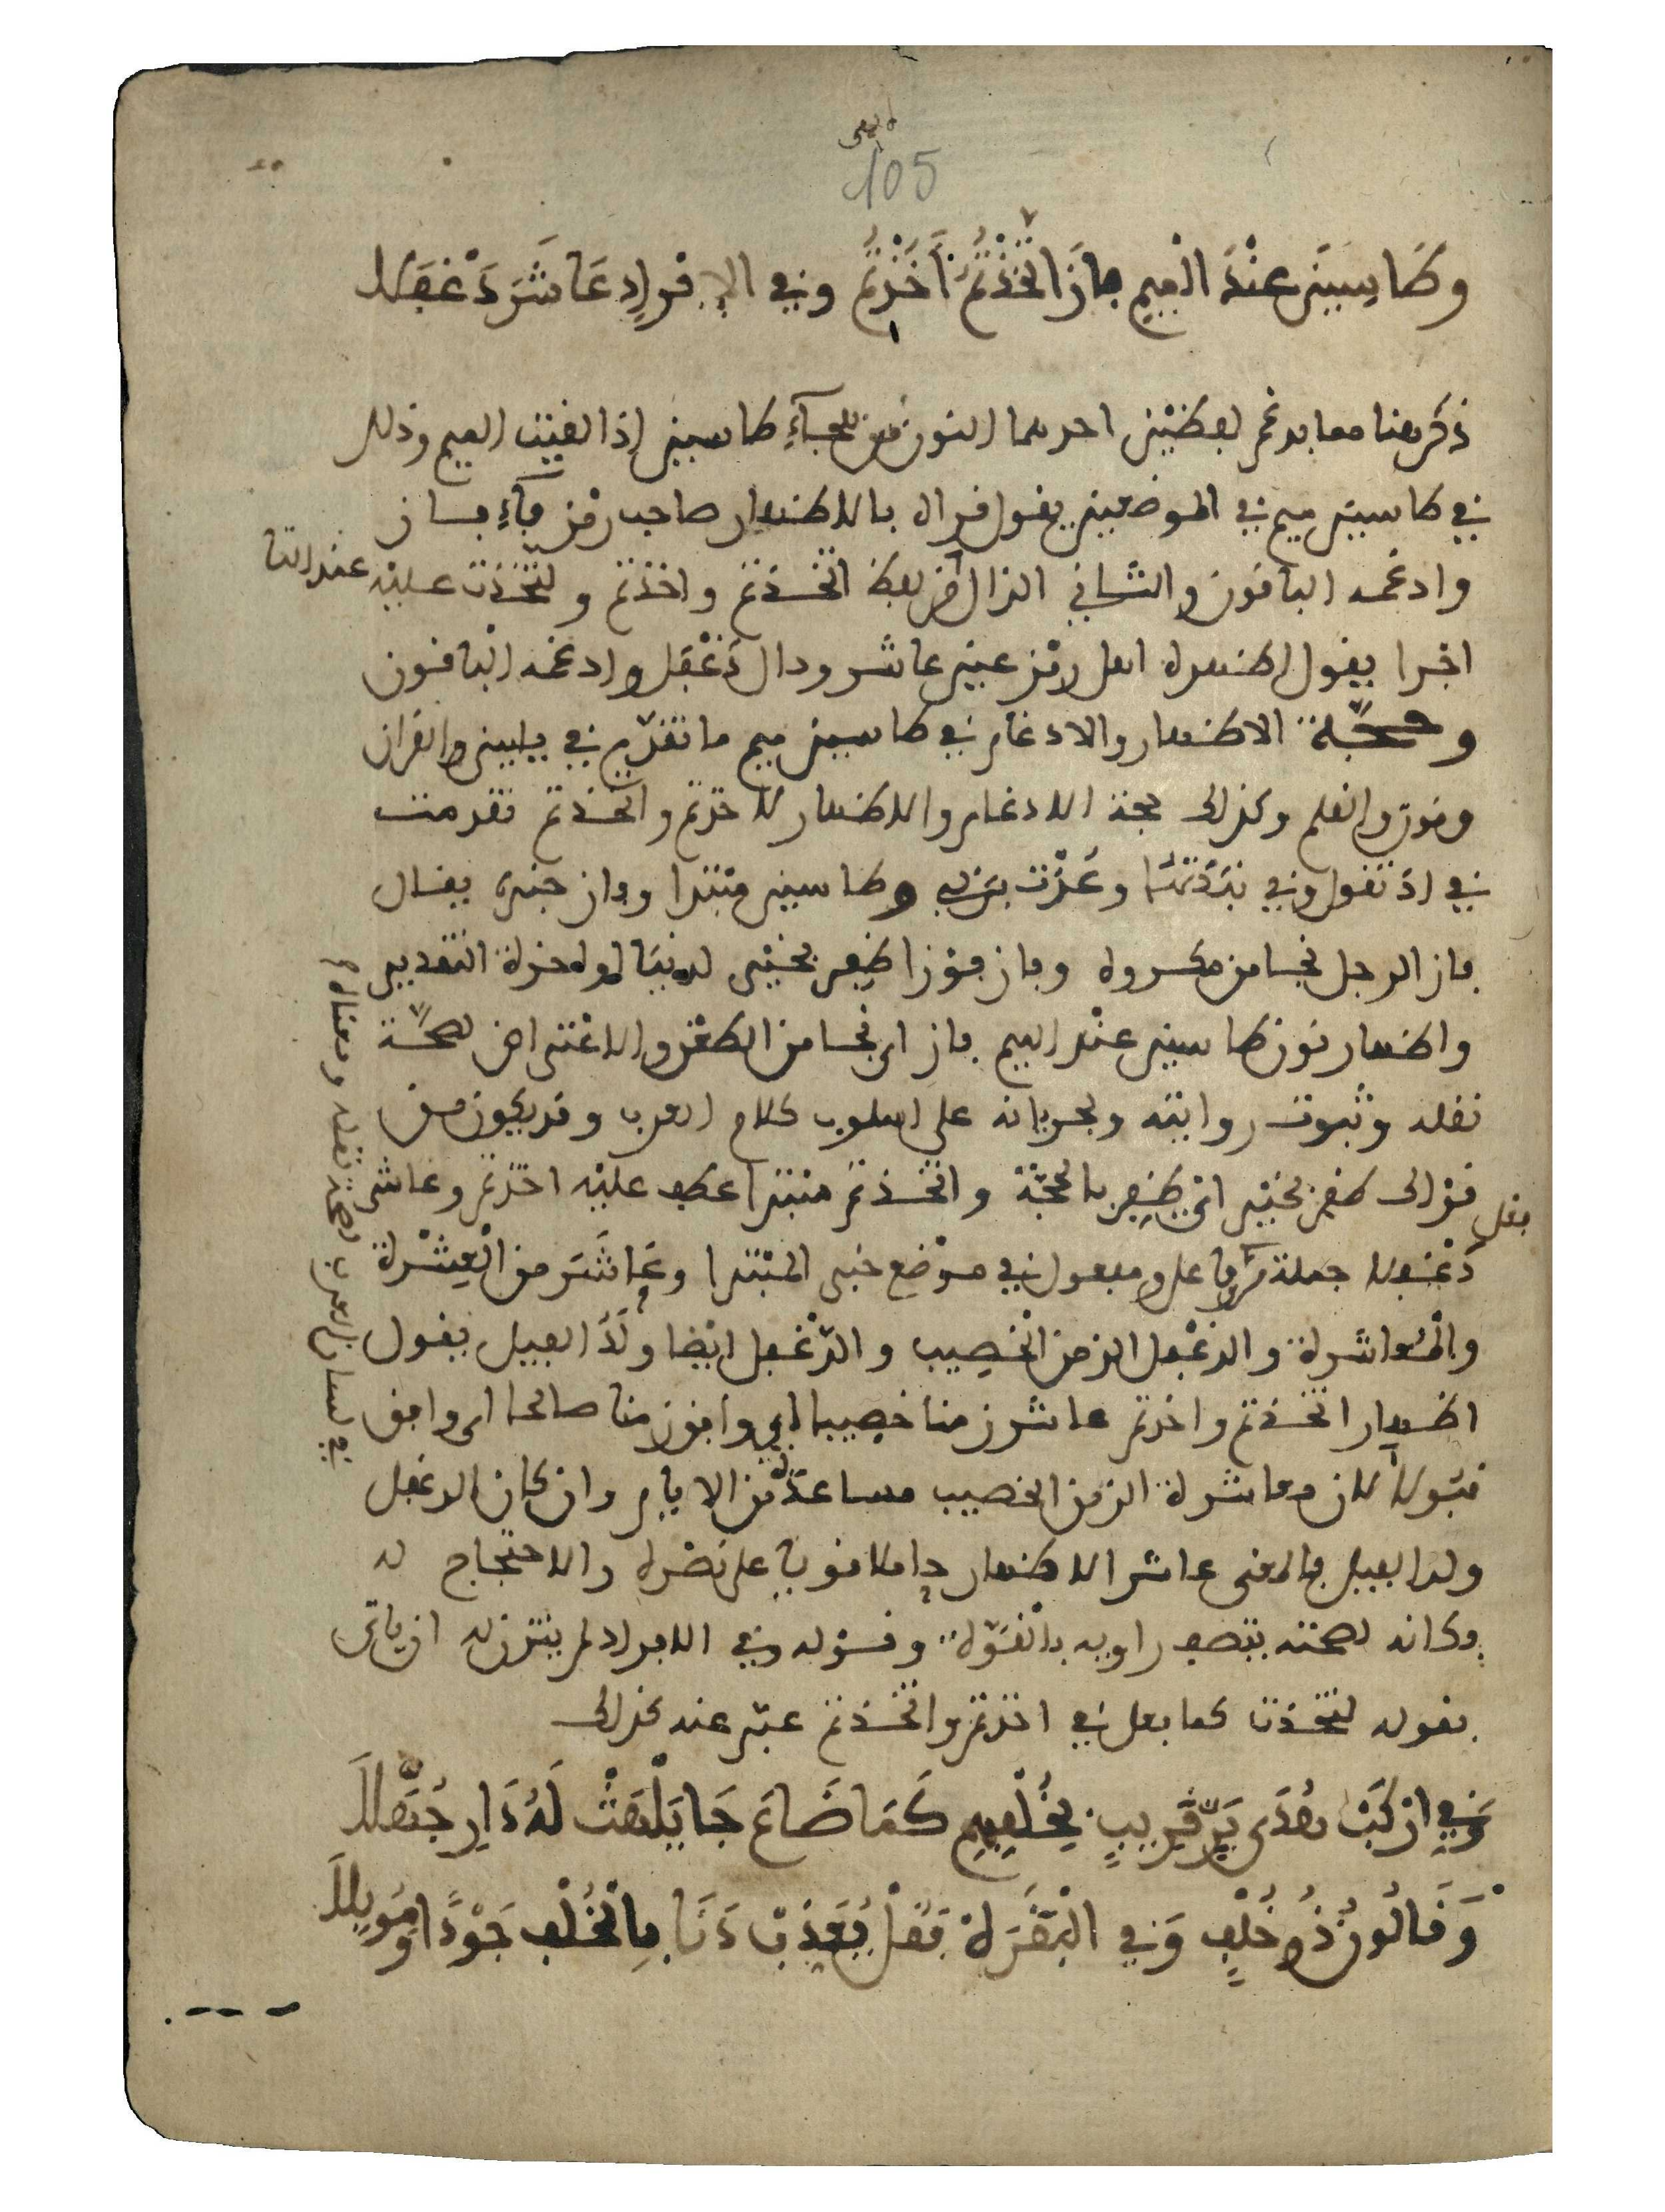 105
وطَاسِينَ عِنْدَ الْمِيمِ فَازَ اتَّخَذْتُمُ أَخَذْتُمُ وفي الإِفْرَادِ عَاشَرَ دَغْفَلا
ذكر هنا مما يدغم لفظين احدهما النون من هجاء طاسين إذا لقيت الميم وذلك
في طاسين ميم في الموضعين يقول قرأه بالاظهار صاحب رمز فاء فاز
وادغمه الباقون والثاني الذال من لفظ اتخذتم واخذتم ولتخذت عليه عند التا
يقول اظهره اهل رمز عين عاشر ودال دَغْفَل وادغمه الباقون
وحجّة الاظهار والادغام في طاسين ميم ما تقدّم في ياسين والقران
ونون والقلم وكذلك حجة الادغام والاظهار لاخذتم واتخذتم تقدمت
في اذ تقول وفي نبَذْتُهَا وعُذْت بربي وطاسين مبتدا وفاز خبره يقال
فاز الرجل نجا من مكروه وفاز فوزا ظفر بخير لدنيا او اخرة التقدير
واظهار نون طاسين عند الميم فاز اي نجا من الطعن والاعتراض لصحّة
نقله وثبوت روايته ولجريانه على اسلوب كلام العرب وقد يكون من
قولك ظفر بخير اي ظفر بالحجّة واتخذتم مبتدا عطف عليه اخذتم وعاشر
دَغْفلا جملة من فاعل ومفعول في موضع خبر المبتدا وعَاشَرَ من الْعِشْرة
والمُعاشرة والدغْفل الزمن الخصيب والدّغْفل ايضا ولَدُ الفيل يقول
اظهار اتخذتم واخذتم عاشر زمنا خصيبا اي وافق زمنا صالحا اي وافق
قبولا لان معاشرة الزمن الخصيب مساعدة من الايام وان كان الدغفل
ولد الفيل فالمعنى عاشر الاظهار حاملا قويا على نصره والاحتجاج له
وكانه لصحته يتصف راويه بالقوّة وقوله وفي الافراد لم يتزن له ان ياتي
بقوله لتخذت كما فعل في اخذتم واتخذتم عبّر عنه بذلك
وَفِي ارْكَبْ هُدَى بَرٍّ قَرِيبٍ بِخُلْفِهِمْ كَمَا ضَاعَ جَا يَلْهَثْ لَهُ دَارِ جُهَّلَا
وَقَالُونُ ذُو خُلْفٍ وَفِي الْبَقَرَهْ فَقُلْ يُعَذِّبْ دَنَا بِالْخُلْفِ جَوْدًا وَمُوبِلَا